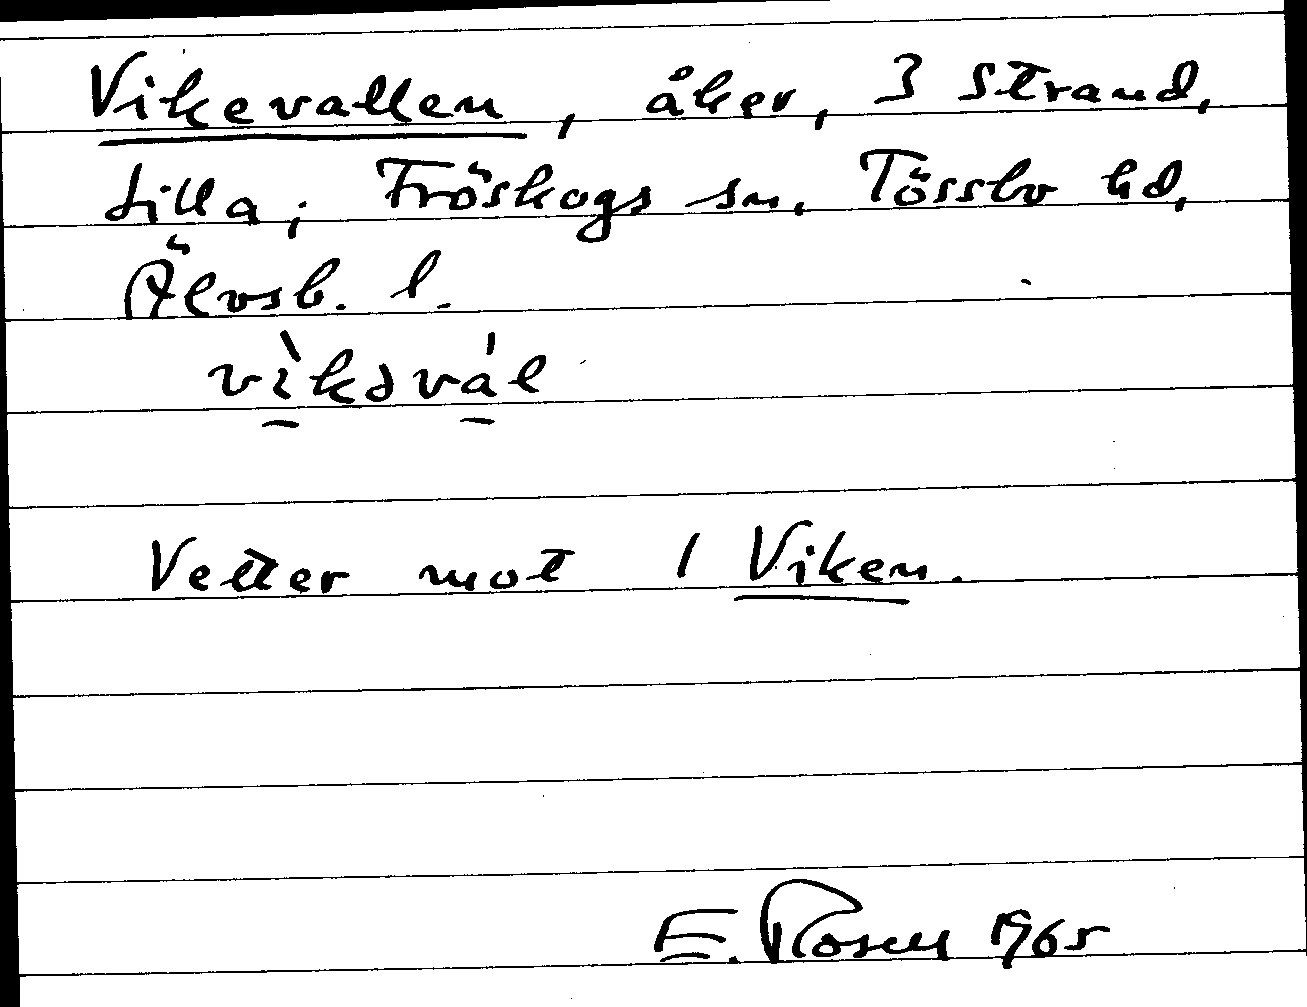 Vikevallen, åker, 3 Strand,
Lilla; Fröskogs sn. Tössbo hd,
Älvsb. l.
vìkəvál
Vetter mot 1 Viken.
E. Rosell 1965